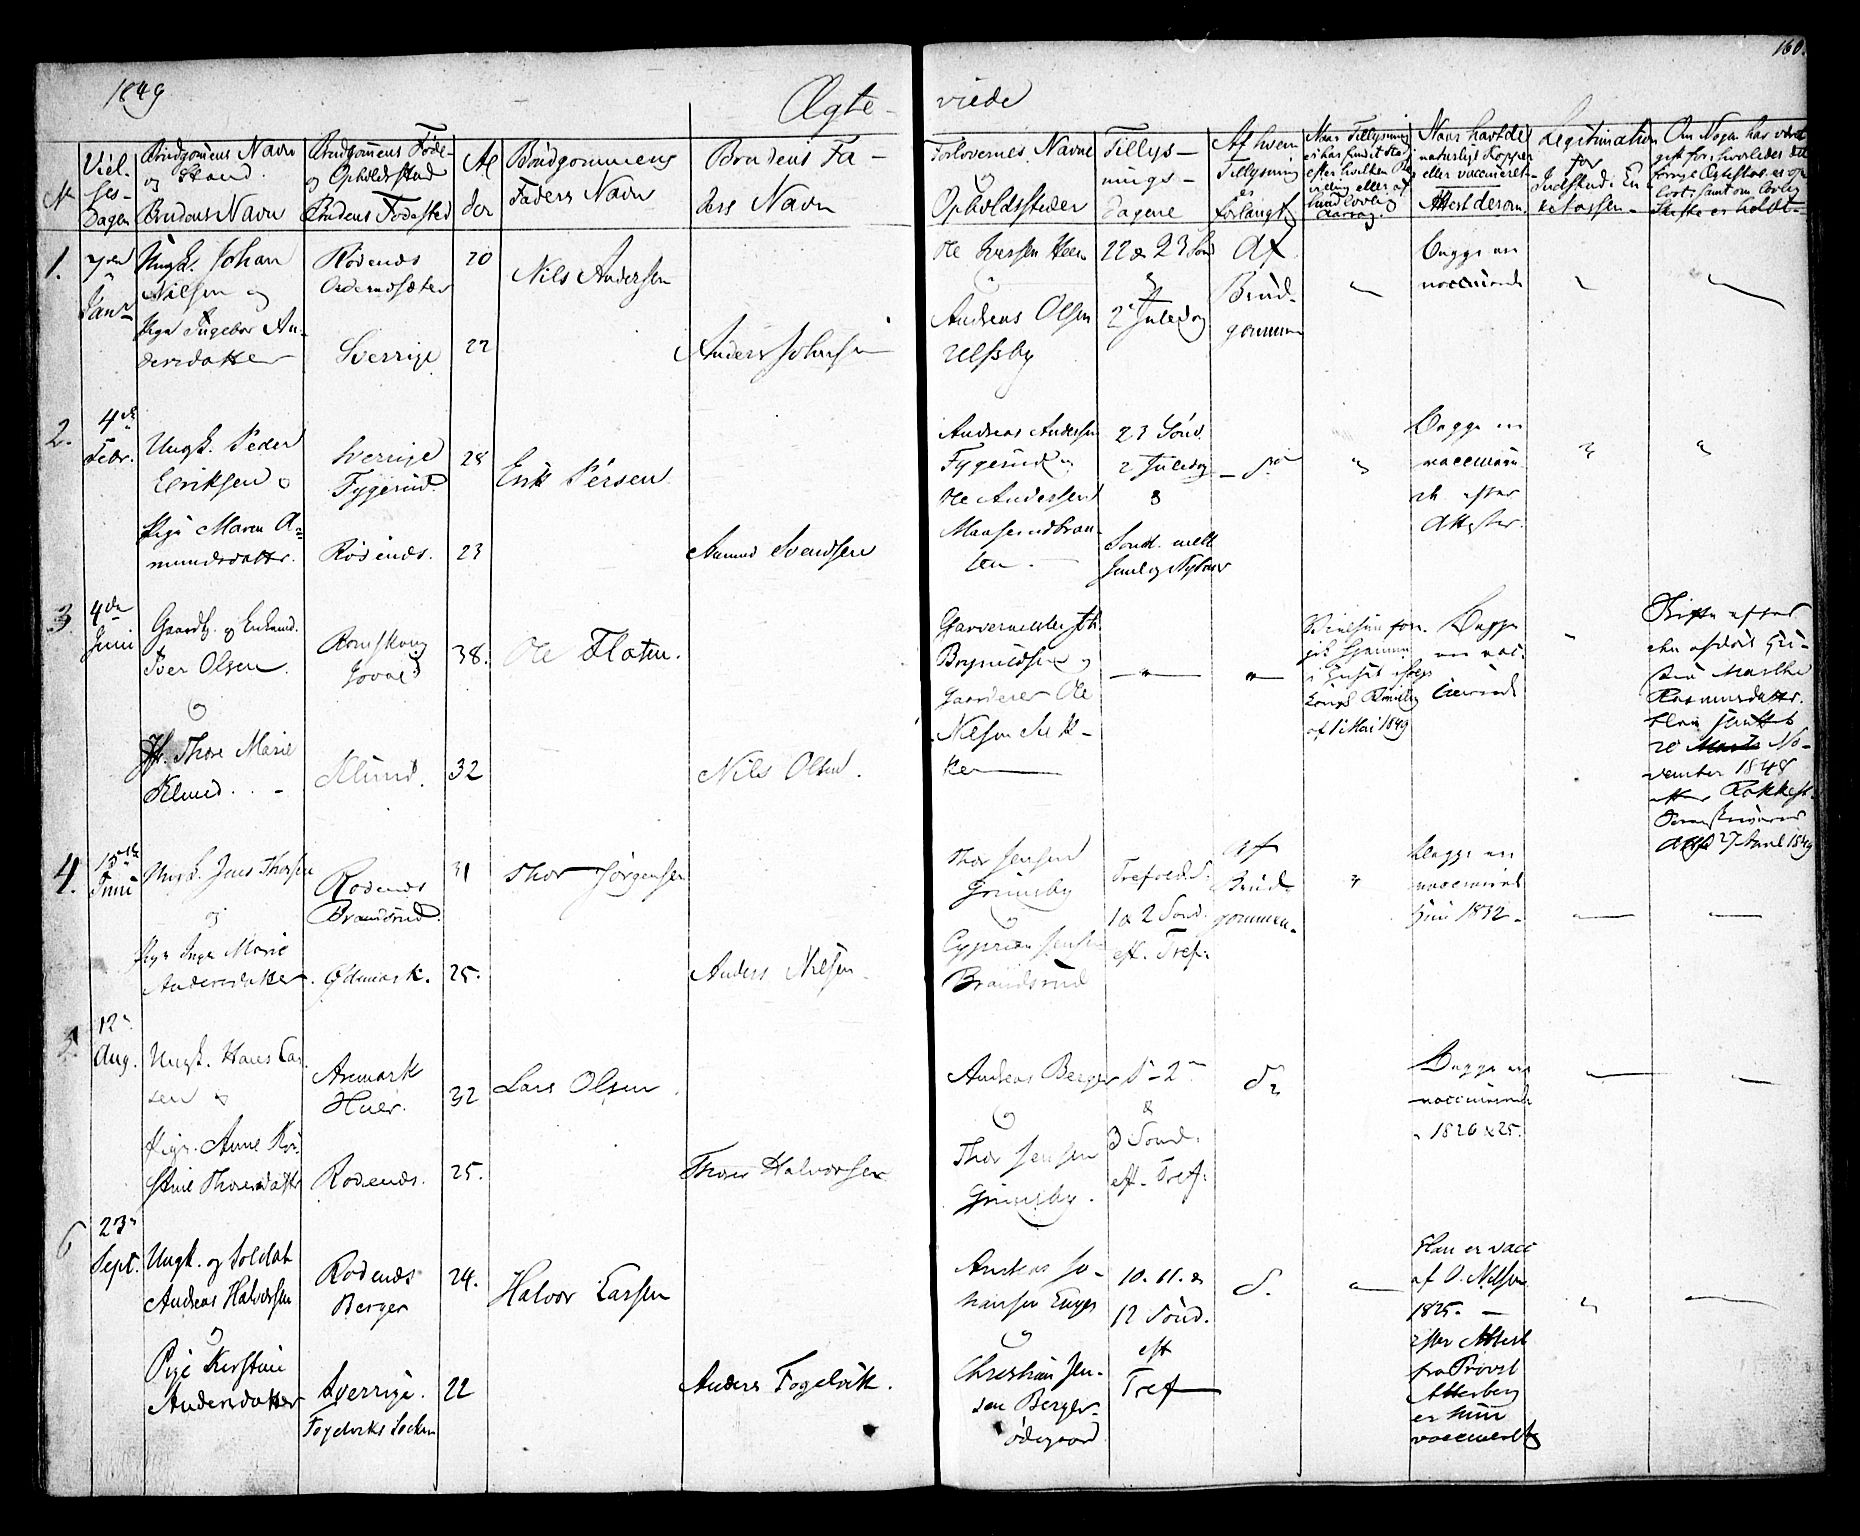 160.
1849
Ægte-
viede
No
Viel-
ses-
Dagen
Brudgomens Navn
og Stand.
Brudens Navn
Brudgomens Føde-
og Opholdsstad
Brudens Fødested
Al
der
Brudgommens
Faders Navn
Brudens Fa-
ders Navn
Forlovernes Navne
og
Opholdssteder
Tillys-
nings-
dagene
Af hvem
Tillysning
er
forlangt
Naar Tillysning
ei har fundet Sted
efter hvilken Be
villing eller af
hvad lovlig
Aarsag.
Naar havt de
naturlige Kopper
eller vaccineret
Attest derom.
Legitimation
for
Indskud i En
kekassen.
Om Nogen har været
gift før, hvorledes det
forrige Ægteskab er op
løst, samt om lovlig
Skifte er holdt.
1.
7den
Janr
Ungk. Johan
Nilsen og
Pige Ingebor An-
dersdatter
Rødenæs
Sverrige
20
22
Nils Andersen
Anders Johnsen
Ole Iversen Heen
og
Andreas Olsen
Ulfsby
22 & 23 Sønd
&
2 Juledag
Af
Brud-
gommen
Begge ere
vaccinerede
2.
4de
Febr.
Ungk. Peder
Eriksen og
Pige Maren A-
mundsdatter.
Sverrige
Tygerud.
Rødenæs.
28
23
Erik Persen
Amund Svendsen
Andreas Andersen
Tygerud og
Ole Andersen
23 Sønd.
2 Juledag
&
Sønd. mell
Juul og Nytaar
Begge ere
efter
Attester.
3.
4de
Juni
Gaardbr. og Enkemd.
Iver Olsen.
og
Jfr. Thore Marie
Klund.
Romskoug
Klund.
38.
32
Ole Flaten.
Nils Olsen.
Garvermester
og
Gaardeier Ole
Nilsen
Vielsen fore-
gik hjemme
i Huset ifølge
Kongl Bevilling
af 1 Mai 1849
Begge
ere vac-
cinerede
Skifte efter
Marthe
Rasmusdatter.
20 No-
vember 1848
27 April 1849
4.
15de
Juni
Ungk. Jens Thorsen
og
Pige Inger Marie
Andersdatter
Rødenæs
Brandsrud.
Ødemark.
31
25.
Thor Jørgensen
Anders Nilsen
Thor Jensen
Grimsby
og
Cyprian Jensen
Brandsrud
Trefoldd.
1 & 2 Sønd.
eft. Tref.
Af
Brud-
gommen.
Begge ere
vaccinerede
hun 1832
5.
12
Aug.
Ungk. Hans Lar
sen og
Pige. Anne Kri-
stine Thoresdatter
Aremark
Huer.
Rødenæs.
32
25.
Lars Olsen
Thore Halvorsen
Andreas Berger
og
Thor Jensen
Grimsby.
1-2
&
3 Sønd.
eft. Tref.
Do
Begge ere
vaccinerede
1826 & 25.
6
23
Sept.
Ungk. og Soldat
Andreas Halvorsen
og
Pige Kerstine
Andersdatter
Rødenæs
Berger
Sverrige.
Fogelviks Socken
24.
22
Halvor Larsen
Anders Fogelvik.
Andreas Jo-
hansen
og
Christian Jen-
sen Berger-
ødegaard
10. 11. &
12 Sønd.
eft
Tref
Do.
Han er vacc
af O. Nilsen
1825.
efter Attest
fra Provst
Atterberg
er hun
vaccineret